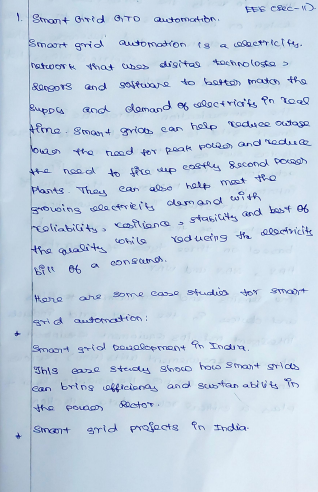 EEE (Sec-II)
1. Smart Grid GTD automation.
Smart grid automation is a electricity.
network that uses digital technologies,
sensors and software to better match the
supply and demand of electricity in real
time. Smart grids can help reduce outage
lower the need for peak power and reduce
the need to fire up costly second power
plants. They can also help meet the
growing electricity demand with
reliability, resilience, stability and best of
the quality while reducing the electricity
bill of a consumer.
Here are some case studies for smart
grid automation:
* Smart grid Development in India.
This case study show how smart grids
can bring efficiency and sustanability in
the power sector.
* Smart grid projects in India.